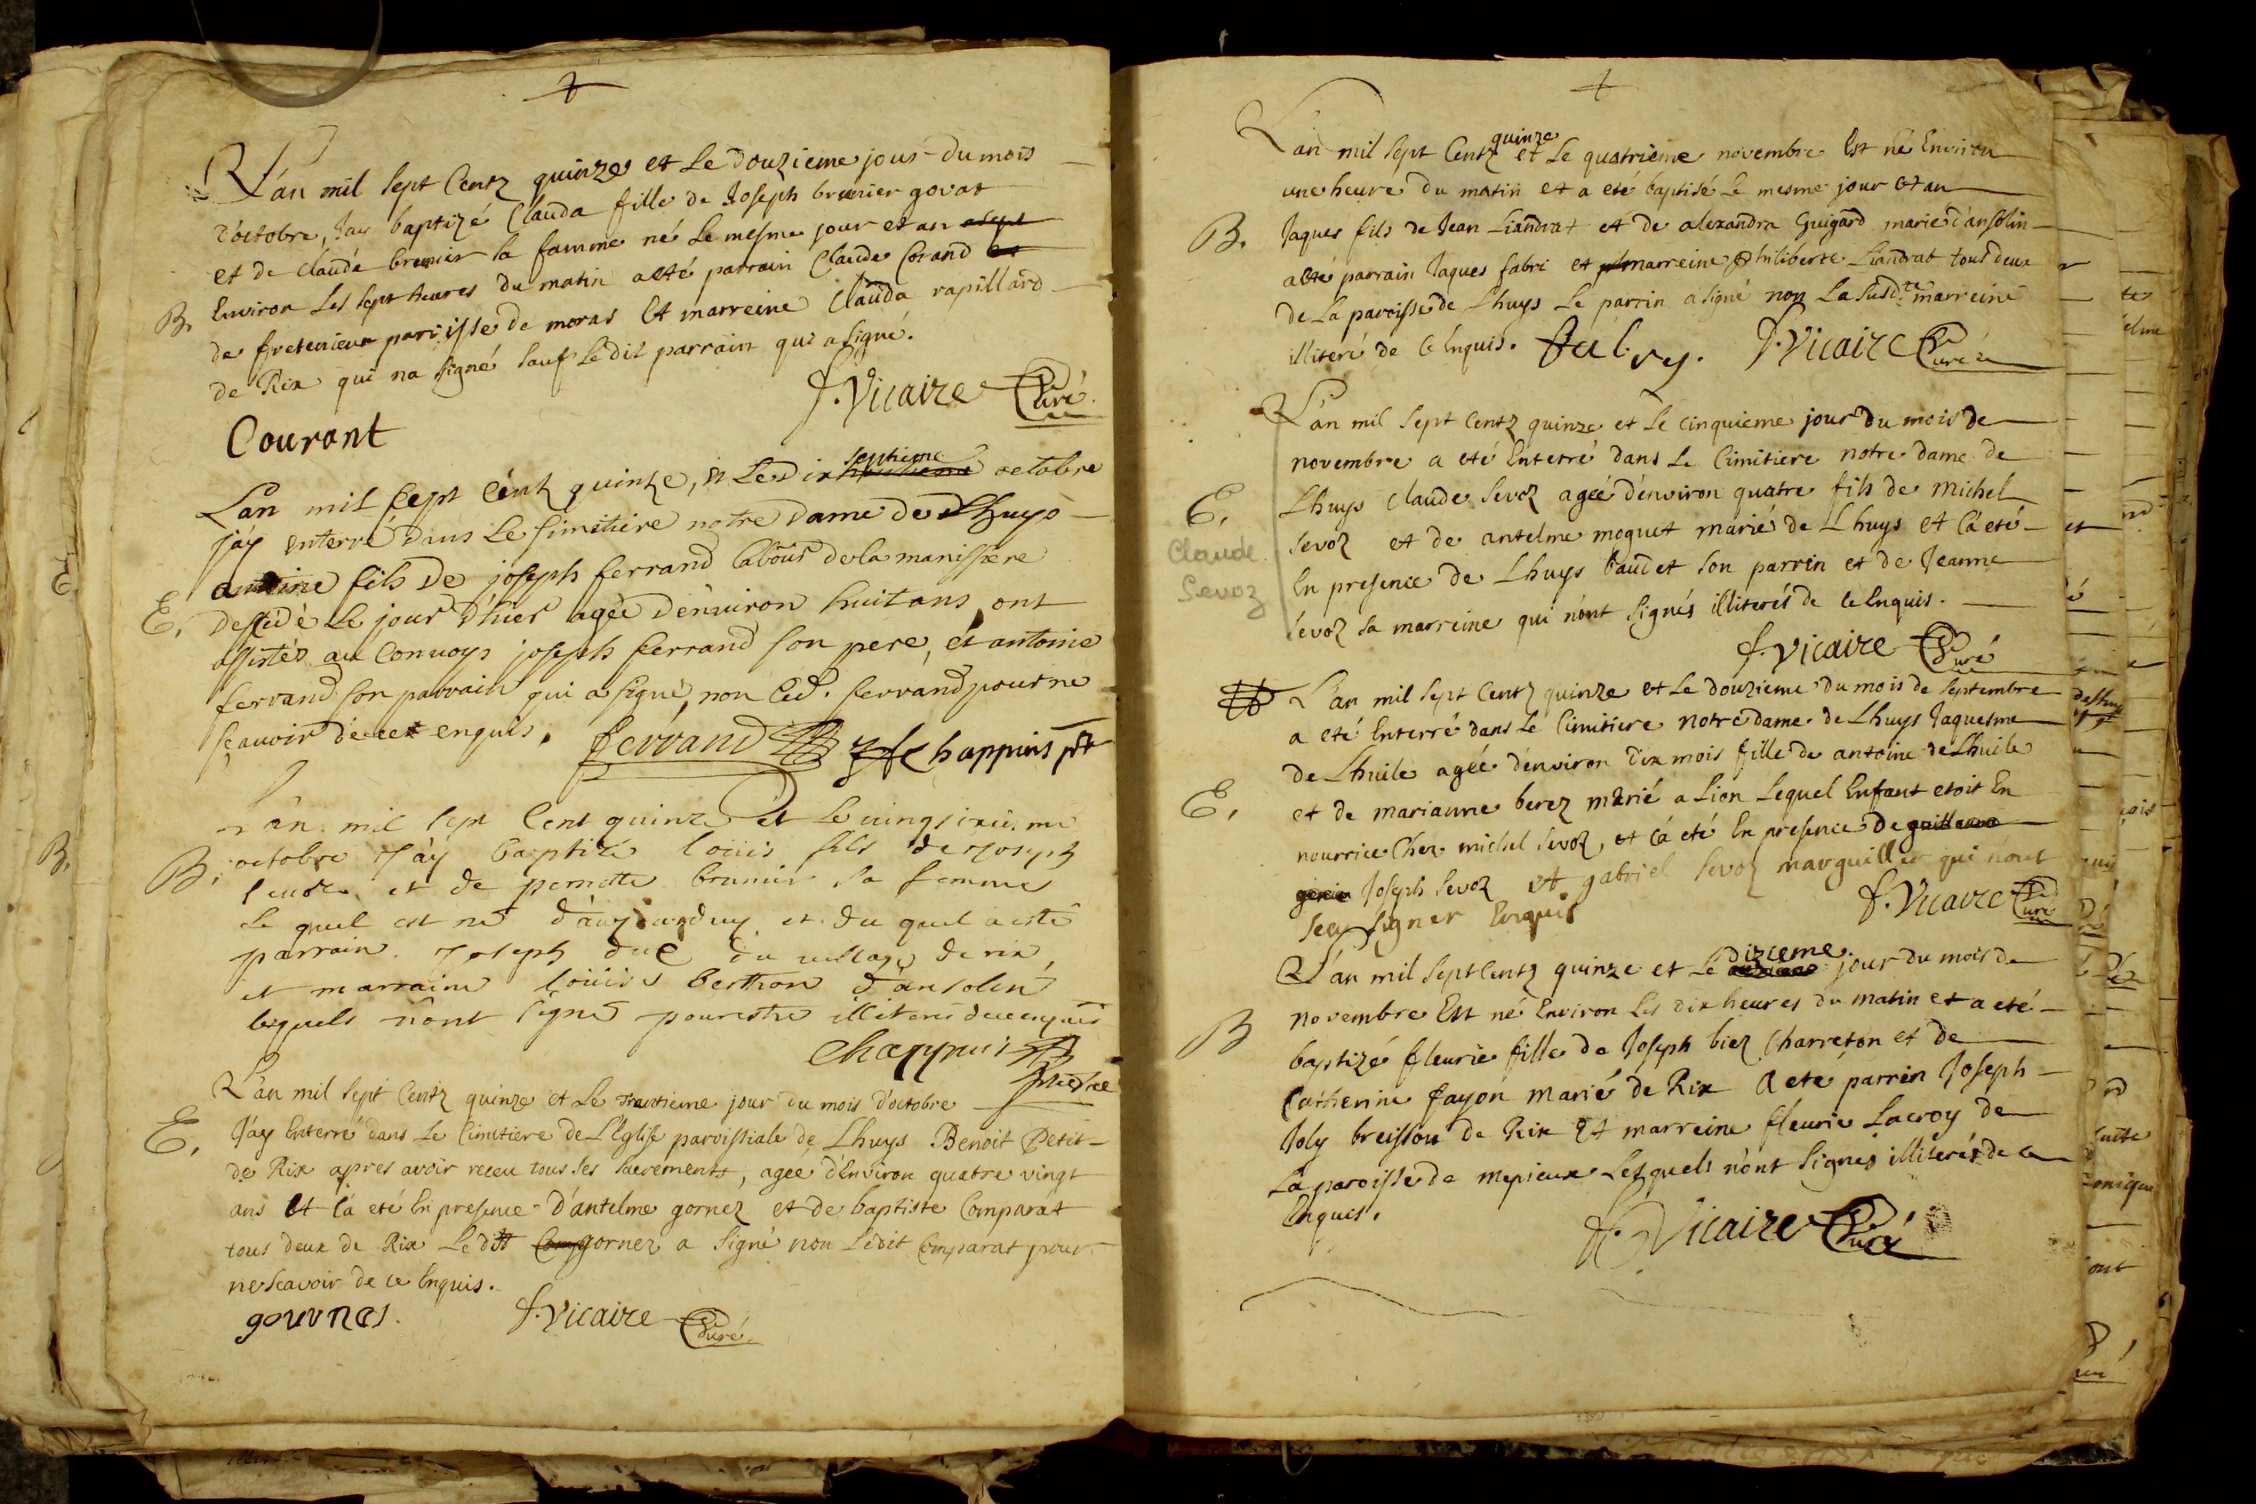 L'an mil sept Centz quinze et le douzieme jour du mois
d'octobre, Jay baptizé Clauda fille de Joseph brunier govat
et de claude brunier sa famme né le mesme jour et an
Environ Les sept heures du matin a été parrain Claude Corand
B. de freterieux parisse de moras Et marreine Clauda rapillard
de Rix qui na signé sauf Ledit parrain qui a signé.
f. Vicaire Curé
Courant
L'an mil sept cent quinze, et le dix septieme octobre
jay enterré dans Le simitiere notre Dame de Lhuys
antoine fils de joseph ferrand labour de la manissiere
E. decédé Le jour d'hier agée d'enuiron huit ans, ont
assistés au Conuoys joseph ferrand son pere, et antoine
ferrand son parrain qui a signé, non Led. ferrand pour ne
sçauoir de ce enquis.
ferrand chappuis prt
L'an mil sept Cent quinze Et Le
B. octobre J'ay baptizé louis fils de Joseph
et de pernette brunier sa femme
Le quel est né d'aujourduy et du quel a esté
parrain Joseph duc du village de rix,
et marraine louise berthon d'ansolin
lesquels n'ont signé pour estre illiteres de ce enquis
Chappuis
prestre
L'an mil sept Centz quinze et Le trantieme jour du mois d'octobre
E. J'ay Enterré dans Le Cimitiere de L'Eglise paroissiale de Lhuys Benoit Petit
de Rix apres avoir receu tous ses sacrements, agee d'Environ quatre vingt
ans Et ça eté En presence d'antelme gornez et de baptiste Comparat
tous deux de Rix Le dit gornez a signé non Ledit Comparat pour
ne scavoir de ce Enquis.
gournes. f. Vicaire Curé
L'an mil sept Centz quinze et Le quatrieme novembre Est né Environ
une heure du matin et a eté baptisé Le mesme jour et an
B. Jaques fils de Jean Liandrat et de alexandra Guigard marie d'ansolin
a eté parrain Jaques fabri et marreine philiberte Liandrat tous deux
de La paroisse de Lhuys Le parrin a signé non La susd.te marreine
illiteré de ce Enquis. Fabry. f. Vicaire Curé
L'an mil sept Centz quinze et Le cinquieme jour du mois de
novembre a eté Enterré dans Le Cimitiere notre dame de
E. Lhuys Claude sevoz ageé d'environ quatre fils de michel
Claude sevoz et de antelme moguet marié de Lhuys et Ca eté
Sevoz En presence de Lhuys baudet son parrin et de Jeanne
sevoz sa marreine qui n'ont signés illiterés de ce Enquis.
f. Vicaire Curé
L'an mil sept Centz quinze et Le douzieme du mois de septembre
a eté Enterré dans Le Cimitiere notre dame de Lhuys Jaquesme
de Lhuile ageé d'environ dix mois fille de antoine de Lhuile
E. et de marianne berez marié a Lion Lequel Enfant etoit En
nourrice Chez michel sevoz, et Ca eté En presence de
Joseph sevoz et gabriel sevoz marguillier qui nont
sceu signer Enquis f. Vicaire Curé
L'an mil sept Centz quinze et Le dizieme jour du mois de
novembre Est né Environ Les dix heures du matin et a eté
B baptizé fleurie fille de Joseph biez Charreton et de
Catherine fayon marié de Rix A eté parrin Joseph
Joly breisson de Rix Et marreine fleurie Lacroy de
La paroisse de mepieux Lesquels n'ont signes illiterés de ce
Enques.
f. Vicaire Curé